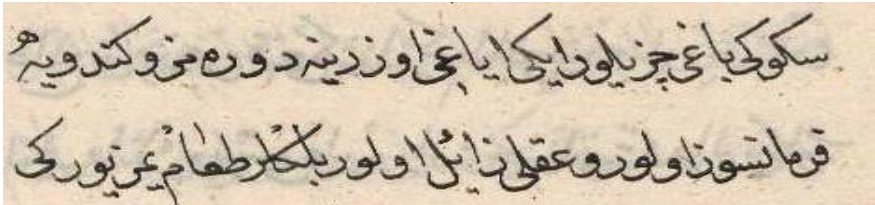 سكوكى باغى چزيلور ايكى اياغى اوزرينه دوره مز و كندويه
فرمانسوز اولور و عقلى زائل اولور طعام يمز يوركى